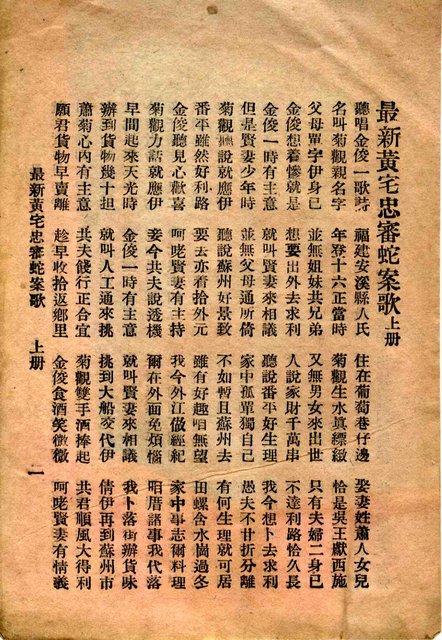 最新黃宅忠審蛇案歌 上册
聽唱金俊一歌詩 福建安溪縣人氏 住在葡萄巷仔邊 娶妻姓蕭人女兒
名叫菊觀親名字 年登十六正當時 菊觀生水真縹緻 恰是吳王獻西施
父母單字伊身已 並無姐妹共兄弟 又無男女來出世 只有夫婦二身已
金俊想着慘就是 想要出外去求利 人說家財千萬串 不達利路恰久長
金俊一時有主意 就叫賢妻來相議 聽說番平好生理 我今想卜去求利
但是賢妻少年時 並無父母通所倚 家中孤單獨自己 愚夫不甘折分離
菊觀聽說就應伊 聽說蘇州好景致 不如暫且蘇州去 有何生理就可居
番平雖然好利路 要去亦着拾外元 雖有好趣唱無望 田螺含水崮過冬
金俊聽見心歡喜 呵咾賢妻有主持 我今外江做經紀 家中事志爾料理
菊觀力話就應伊 妾今共夫說透機 爾在外面免煩惱 咱厝諸事我代落
早間起來天光時 金俊一時有主意 就叫賢妻來相議 我卜落街辦貨味
辦到貨物幾十担 就叫人工通來挑 挑到大船交代伊 倩伊再到蘇州市
蕭菊心內有主意 共夫餞行正合宜 菊觀雙手酒捧起 共君順風大得利
願君貨物早賣離 趁早收拾返鄉里 金俊食酒笑微微 呵咾賢妻有情義
最新黃宅忠審蛇案歌 上册 一